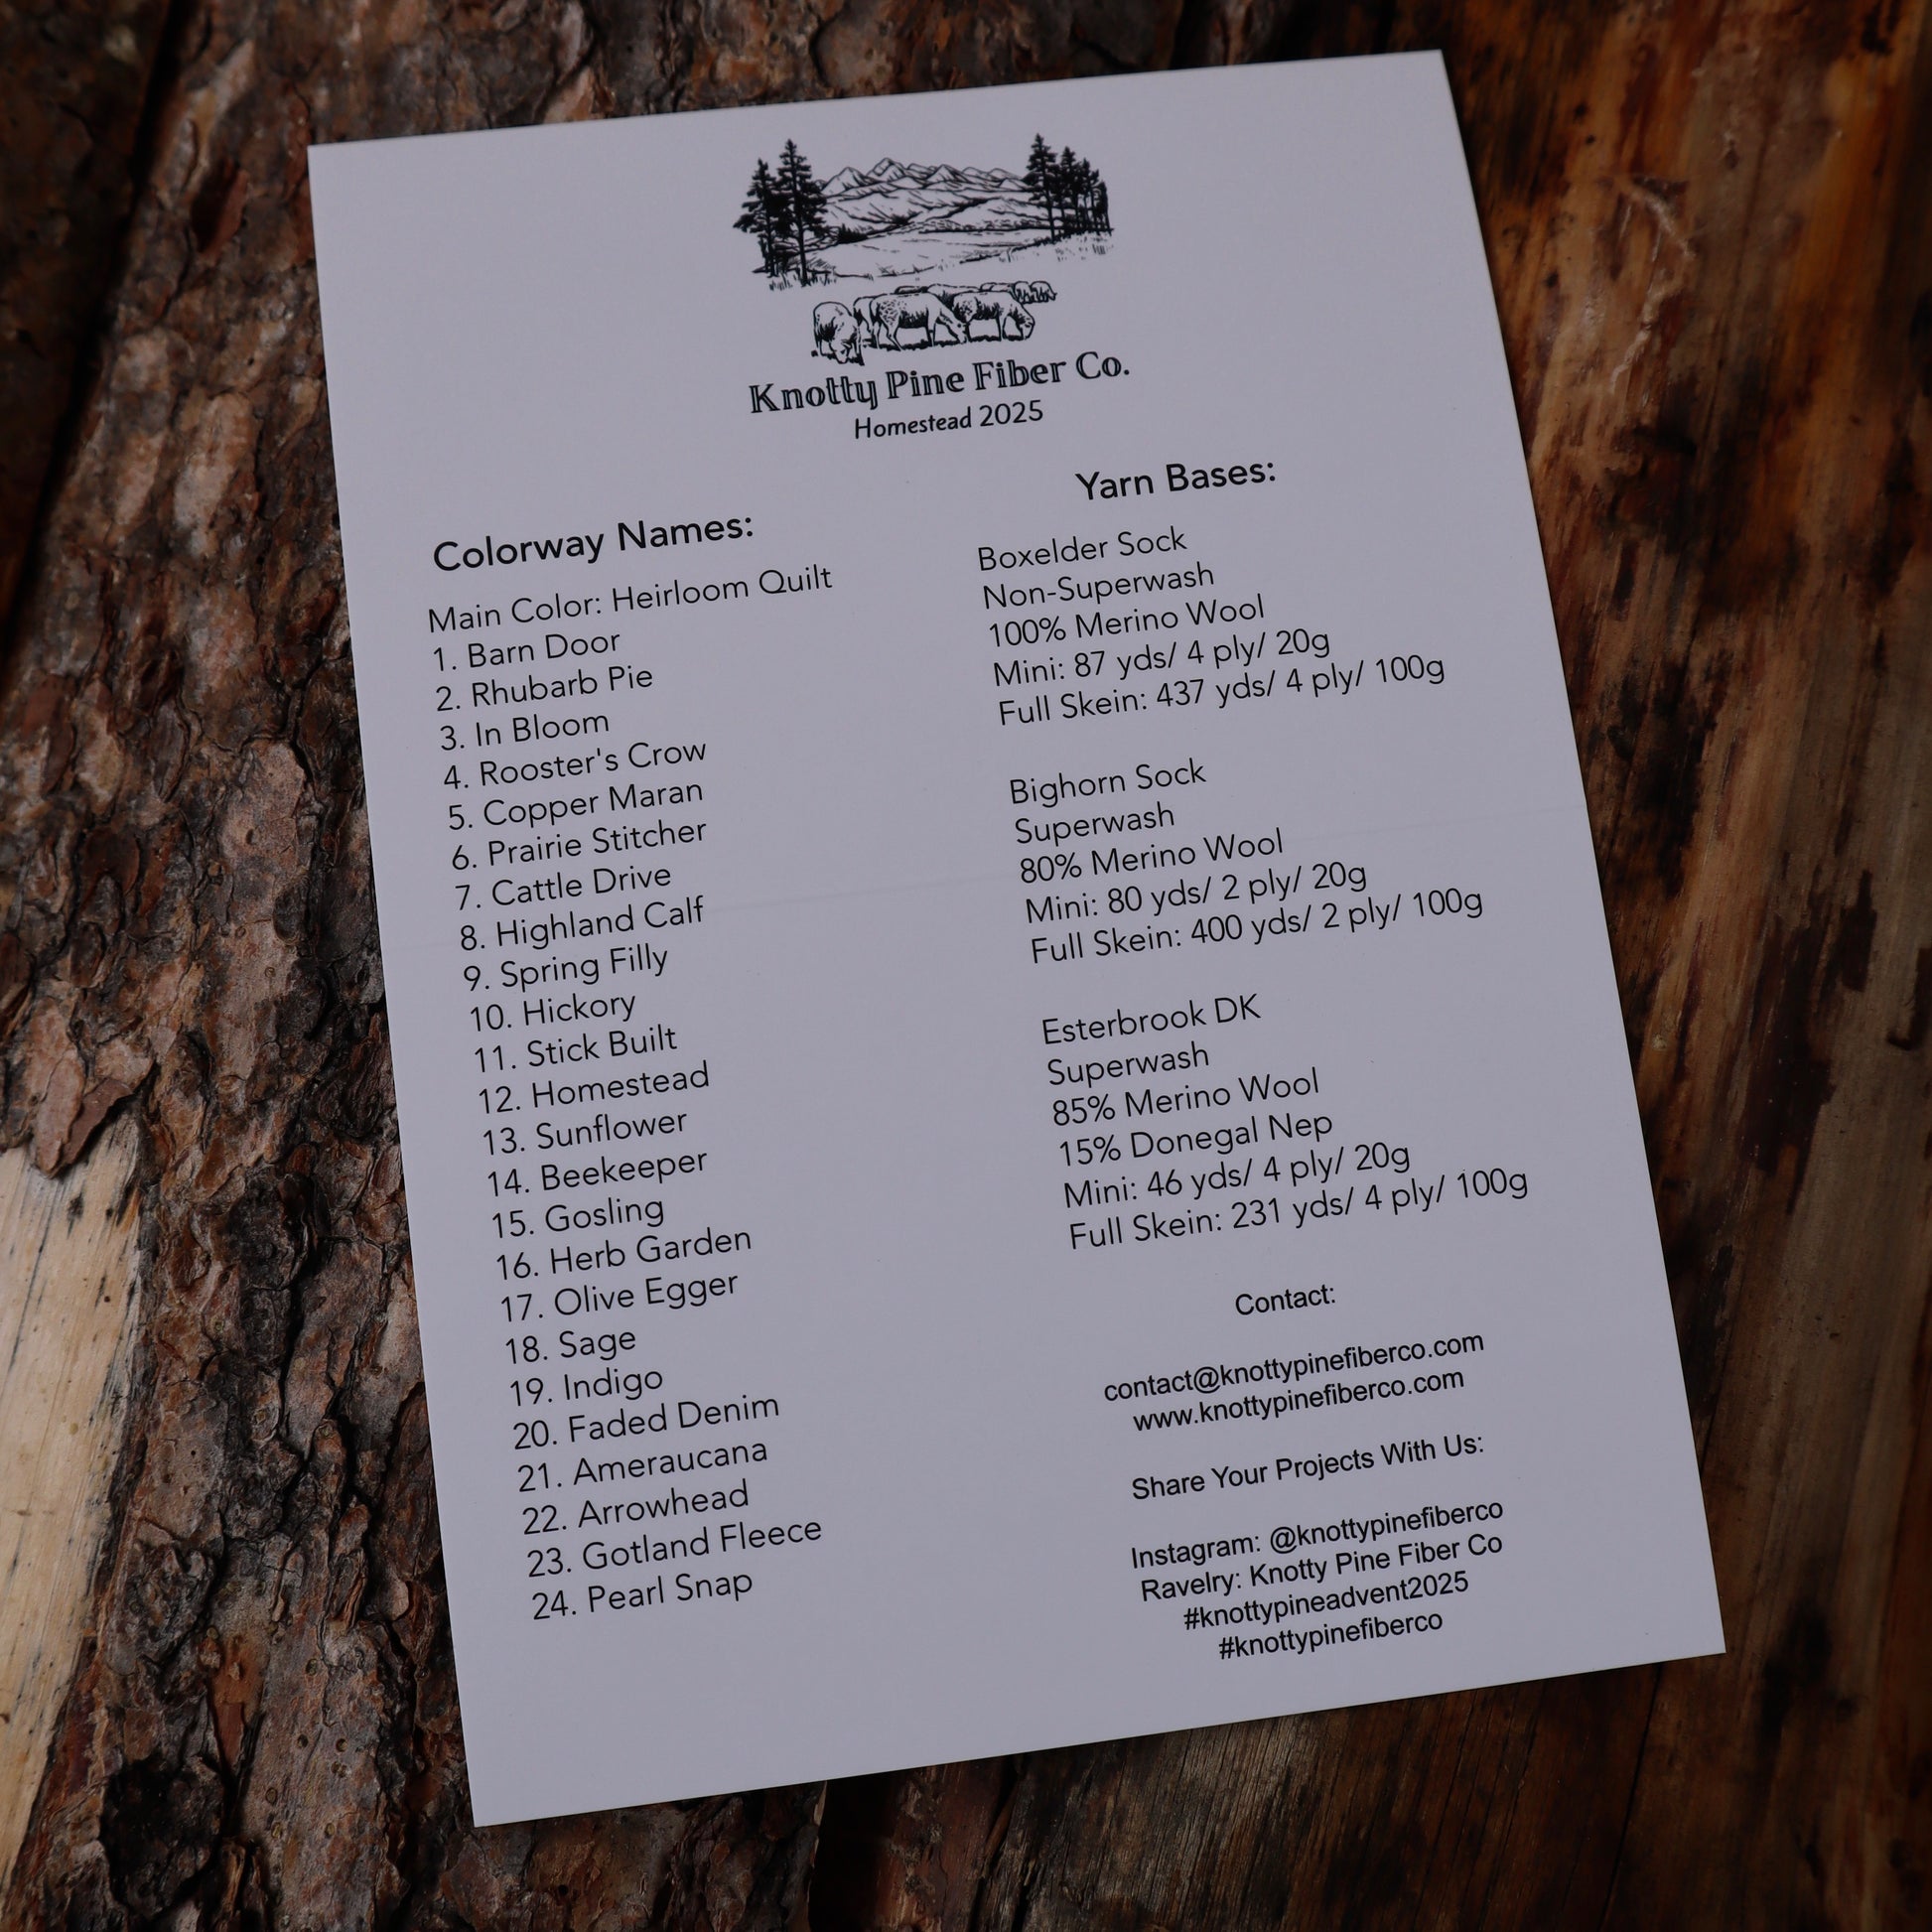 Knotty Pine Fiber Co.
Homestead 2025
Colorway Names:
Main Color: Heirloom Quilt
1. Barn Door
2. Rhubarb Pie
3. In Bloom
4. Rooster's Crow
5. Copper Maran
6. Prairie Stitcher
7. Cattle Drive
8. Highland Calf
9. Spring Filly
10. Hickory
11. Stick Built
12. Homestead
13. Sunflower
14. Beekeeper
15. Gosling
16. Herb Garden
17. Olive Egger
18. Sage
19. Indigo
20. Faded Denim
21. Ameraucana
22. Arrowhead
23. Gotland Fleece
24. Pearl Snap
Yarn Bases:
Boxelder Sock
Non-Superwash
100% Merino Wool
Mini: 87 yds/ 4 ply/ 20g
Full Skein: 437 yds/ 4 ply/ 100g
Bighorn Sock
Superwash
80% Merino Wool
Mini: 80 yds/ 2 ply/ 20g
Full Skein: 400 yds/ 2 ply/ 100g
Esterbrook DK
Superwash
85% Merino Wool
15% Donegal Nep
Mini: 46 yds/ 4 ply/ 20g
Full Skein: 231 yds/ 4 ply/ 100g
Contact:
contact@knottypinefiberco.com
www.knottypinefiberco.com
Share Your Projects With Us:
Instagram: @knottypinefiberco
Ravelry: Knotty Pine Fiber Co
#knottypineadvent2025
#knottypinefiberco